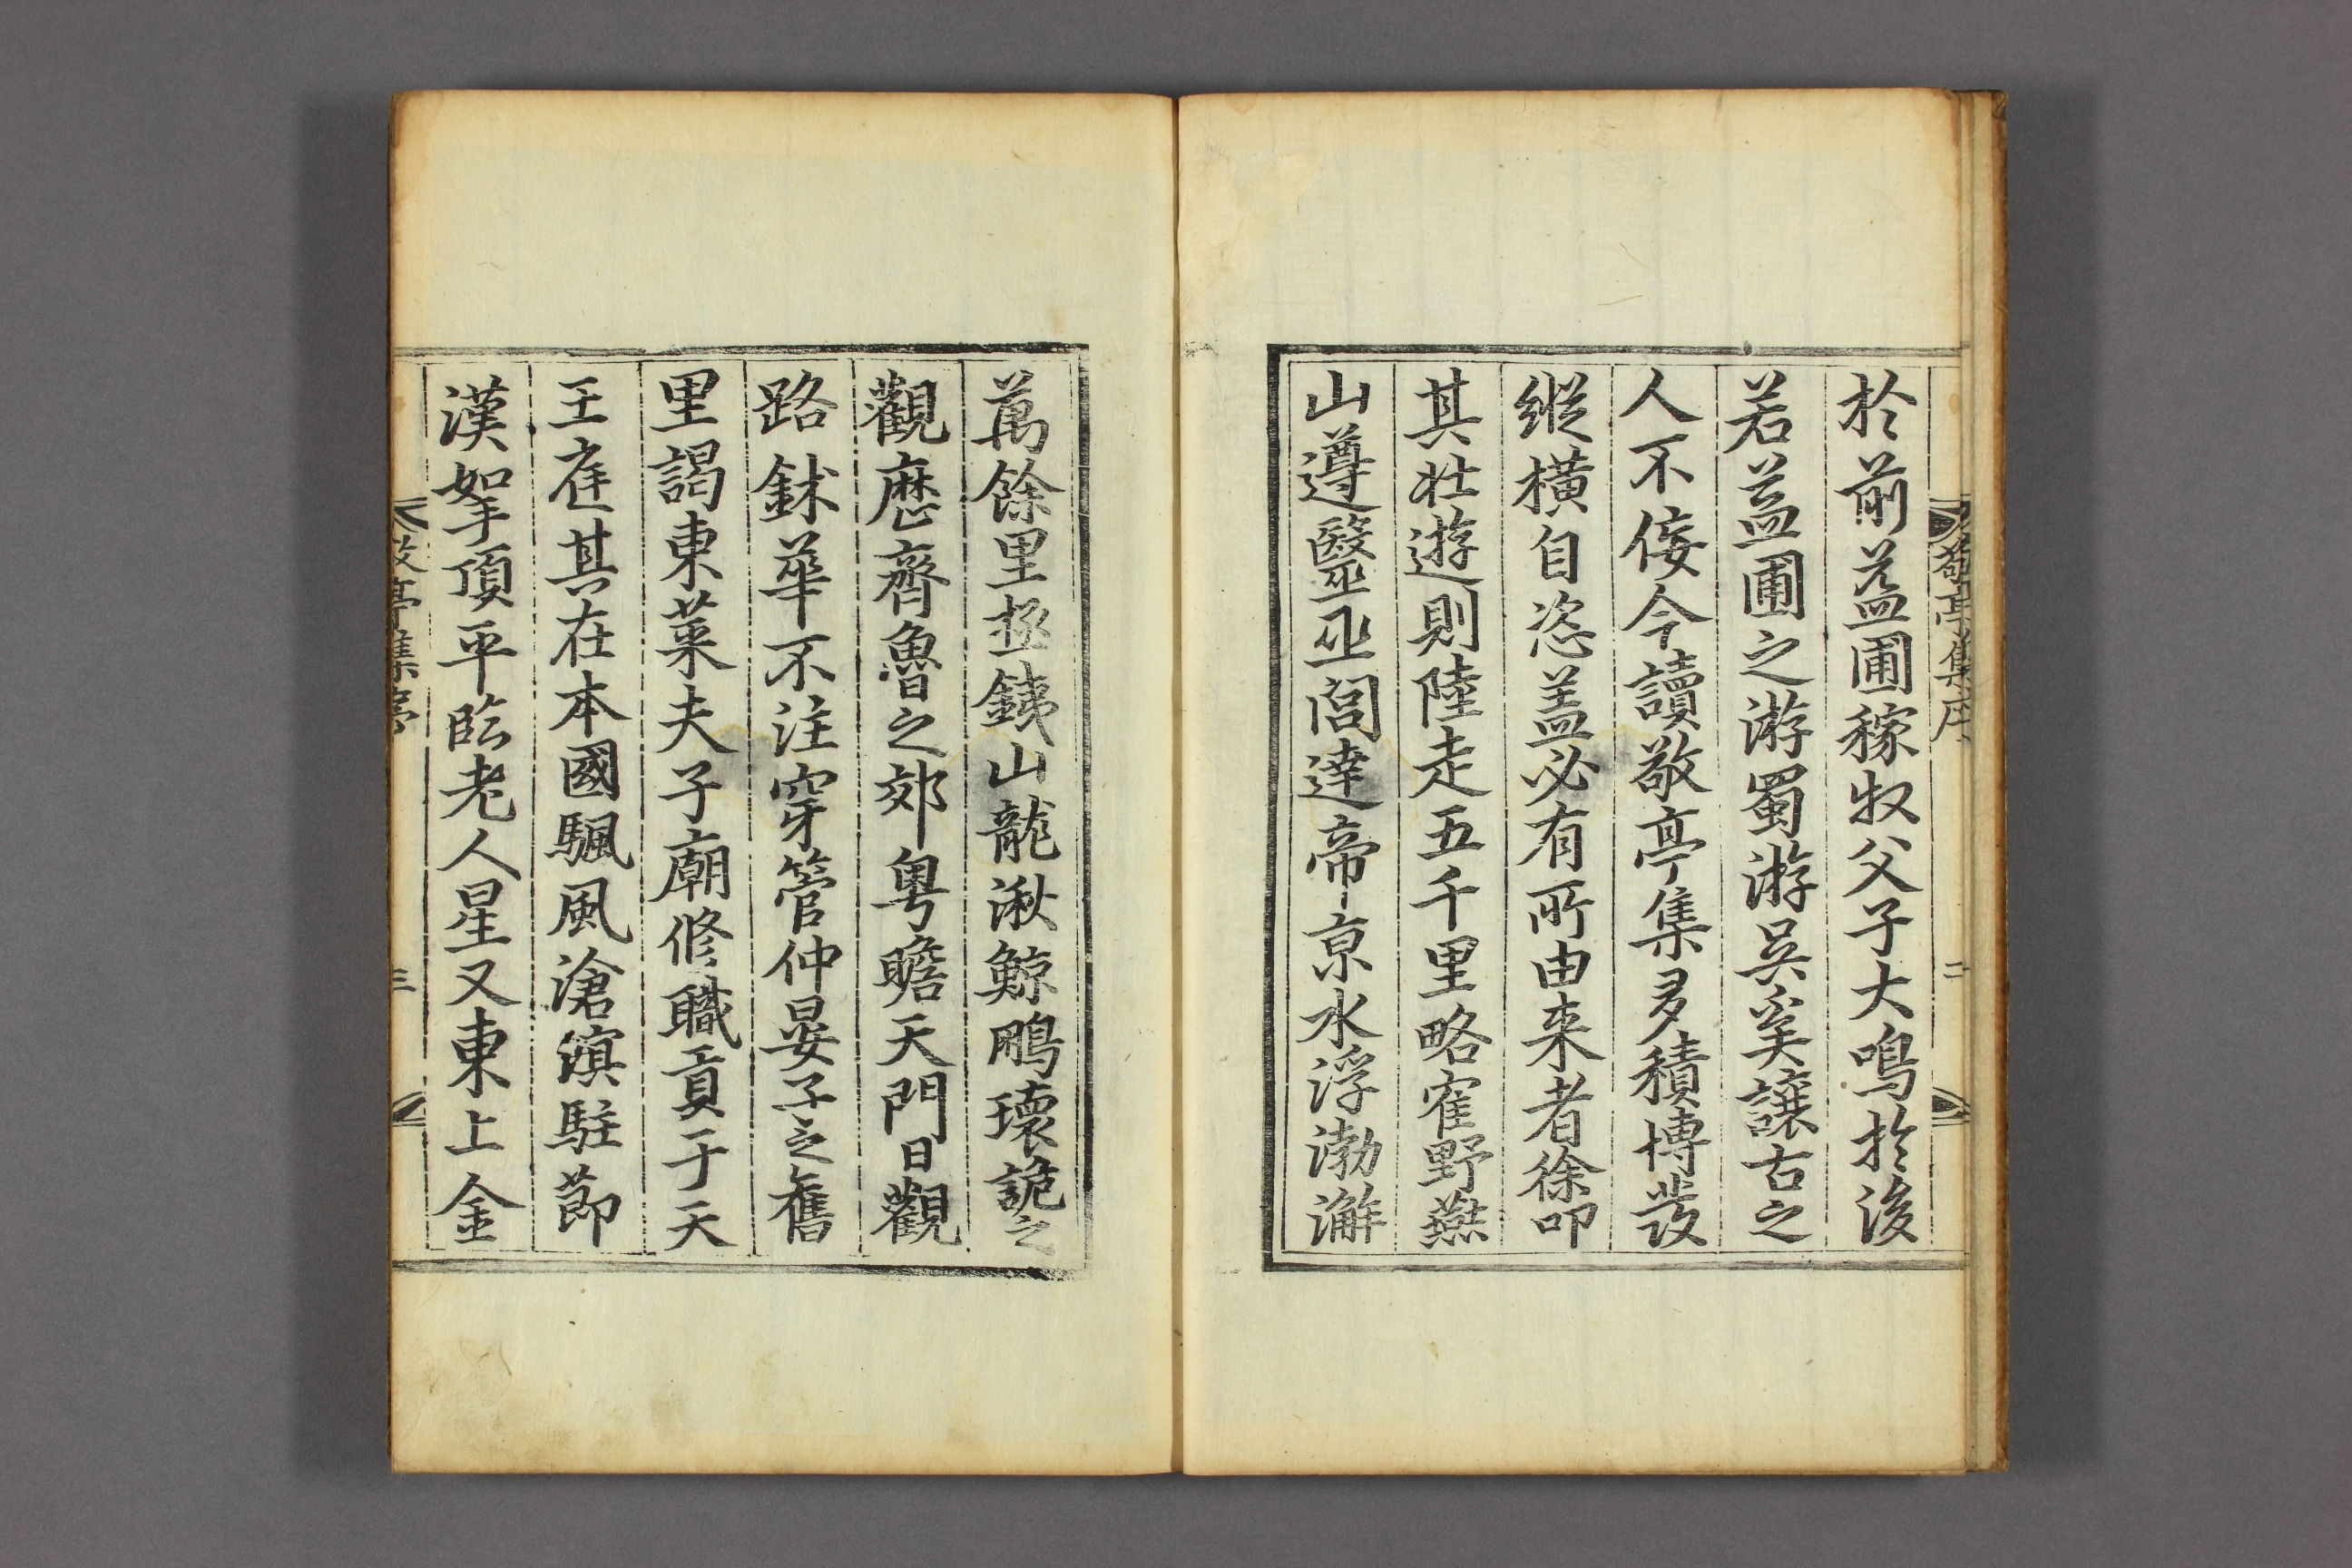 敬亭集序
二
於前益圃稼牧父子大鳴於後
若益圃之游蜀游吳奚讓古之
人不佞今讀敬亭集多積博發
縱橫自恣盖必有所由來者徐叩
其壯遊則陸走五千里略寉野燕
山遵毉巫閭達帝京水浮渤澥
萬餘里拯銕山龍湫鯨鵰瓌詭之
觀歷齊魯之郊粤瞻天門日觀
路銤華不注穿管仲晏子之舊
里謁東萊夫子廟修職貢于天
王庭其在本國颿風滄溟駐節
漢拏頂平臨老人星又東上金
敬亭集序
三